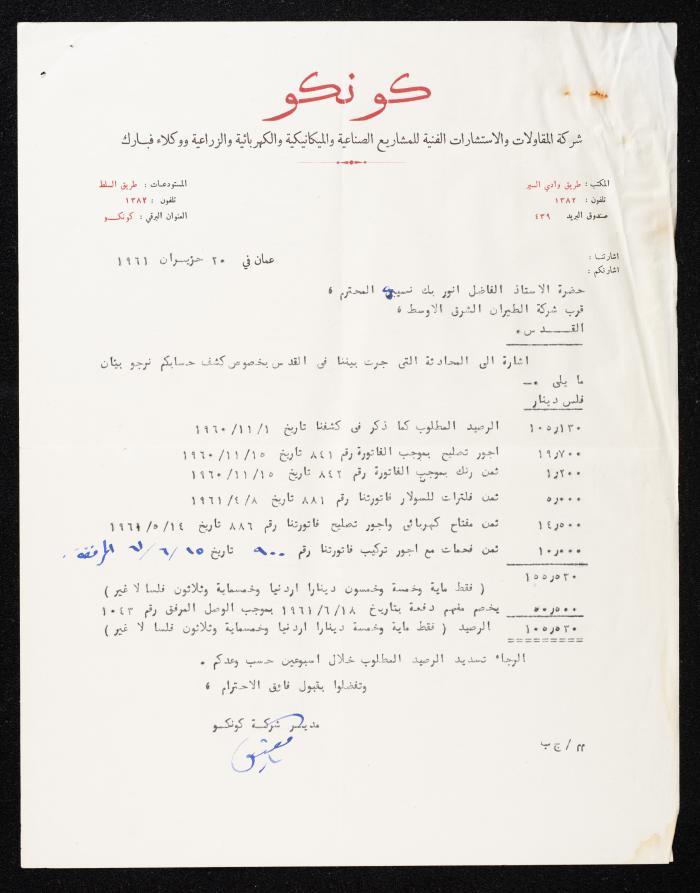 كونكو
شركة المقاولات والاستشارات الفنية للمشاريع الصناعية والميكانيكية والكهربائية والزراعية ووكلاء فبارك
المكتب : طريق وادي السير
تلفون : ١٣٨٢
صندوق البريد ٤٣٩
المستودعات : طريق السلط
تلفون : ١٣٨٢
العنوان البرقي : كونكـو
اشارتنا :
اشارتكم :
عمان في ٢٠ حزيران ١٩٦١
حضرة الاستاذ الفاضل انور بك نسيبه المحترم ،
قرب شركة الطيران الشرق الاوسط ،
القـــدس .
اشارة الى المحادثة التي جرت بيننا في القدس بخصوص كشف حسابكم نرجو بيان
ما يلي :ـ
فلس دينار
١٠٥ر١٣٠ الرصيد المطلوب كما ذكر في كشفنا تاريخ ١٩٦٠/١١/١
١٩ر٧٠٠ اجور تصليح بموجب الفاتورة رقم ٨٤١ تاريخ ١٩٦٠/١١/١٥
١ر٢٠٠ ثمن رنك بموجب الفاتورة رقم ٨٤٢ تاريخ ١٩٦٠/١١/١٥
٥ر٠٠٠ ثمن فلترات للسولار فاتورتنا رقم ٨٨١ تاريخ ١٩٦١/٤/٨
١٤ر٥٠٠ ثمن مفتاح كهربائي واجور تصليح فاتورتنا رقم ٨٨٦ تاريخ ١٩٦١/٥/١٤
١٠ر٠٠٠ ثمن فحمات مع اجور تركيب فاتورتنا رقم ٩٠٠ تاريخ ٦١/٦/١٥ المرفقة .
١٥٥ر٥٣٠
( فقط ماية وخمسة وخمسون دينارا اردنيا وخمسماية وثلاثون فلسا لا غير )
٥٠ر٠٠٠ يخصم مفهم دفعة بتاريخ ١٩٦١/٦/١٨ بموجب الوصل المرفق رقم ١٠٤٣
١٠٥ر٥٣٠ الرصيد ( فقط ماية وخمسة دينارا اردنيا وخمسماية وثلاثون فلسا لا غير )
الرجاء تسديد الرصيد المطلوب خلال اسبوعين حسب وعدكم .
وتفضلوا بقبول فائق الاحترام ،
مديـر شركـة كونكـو
مم / ج ب